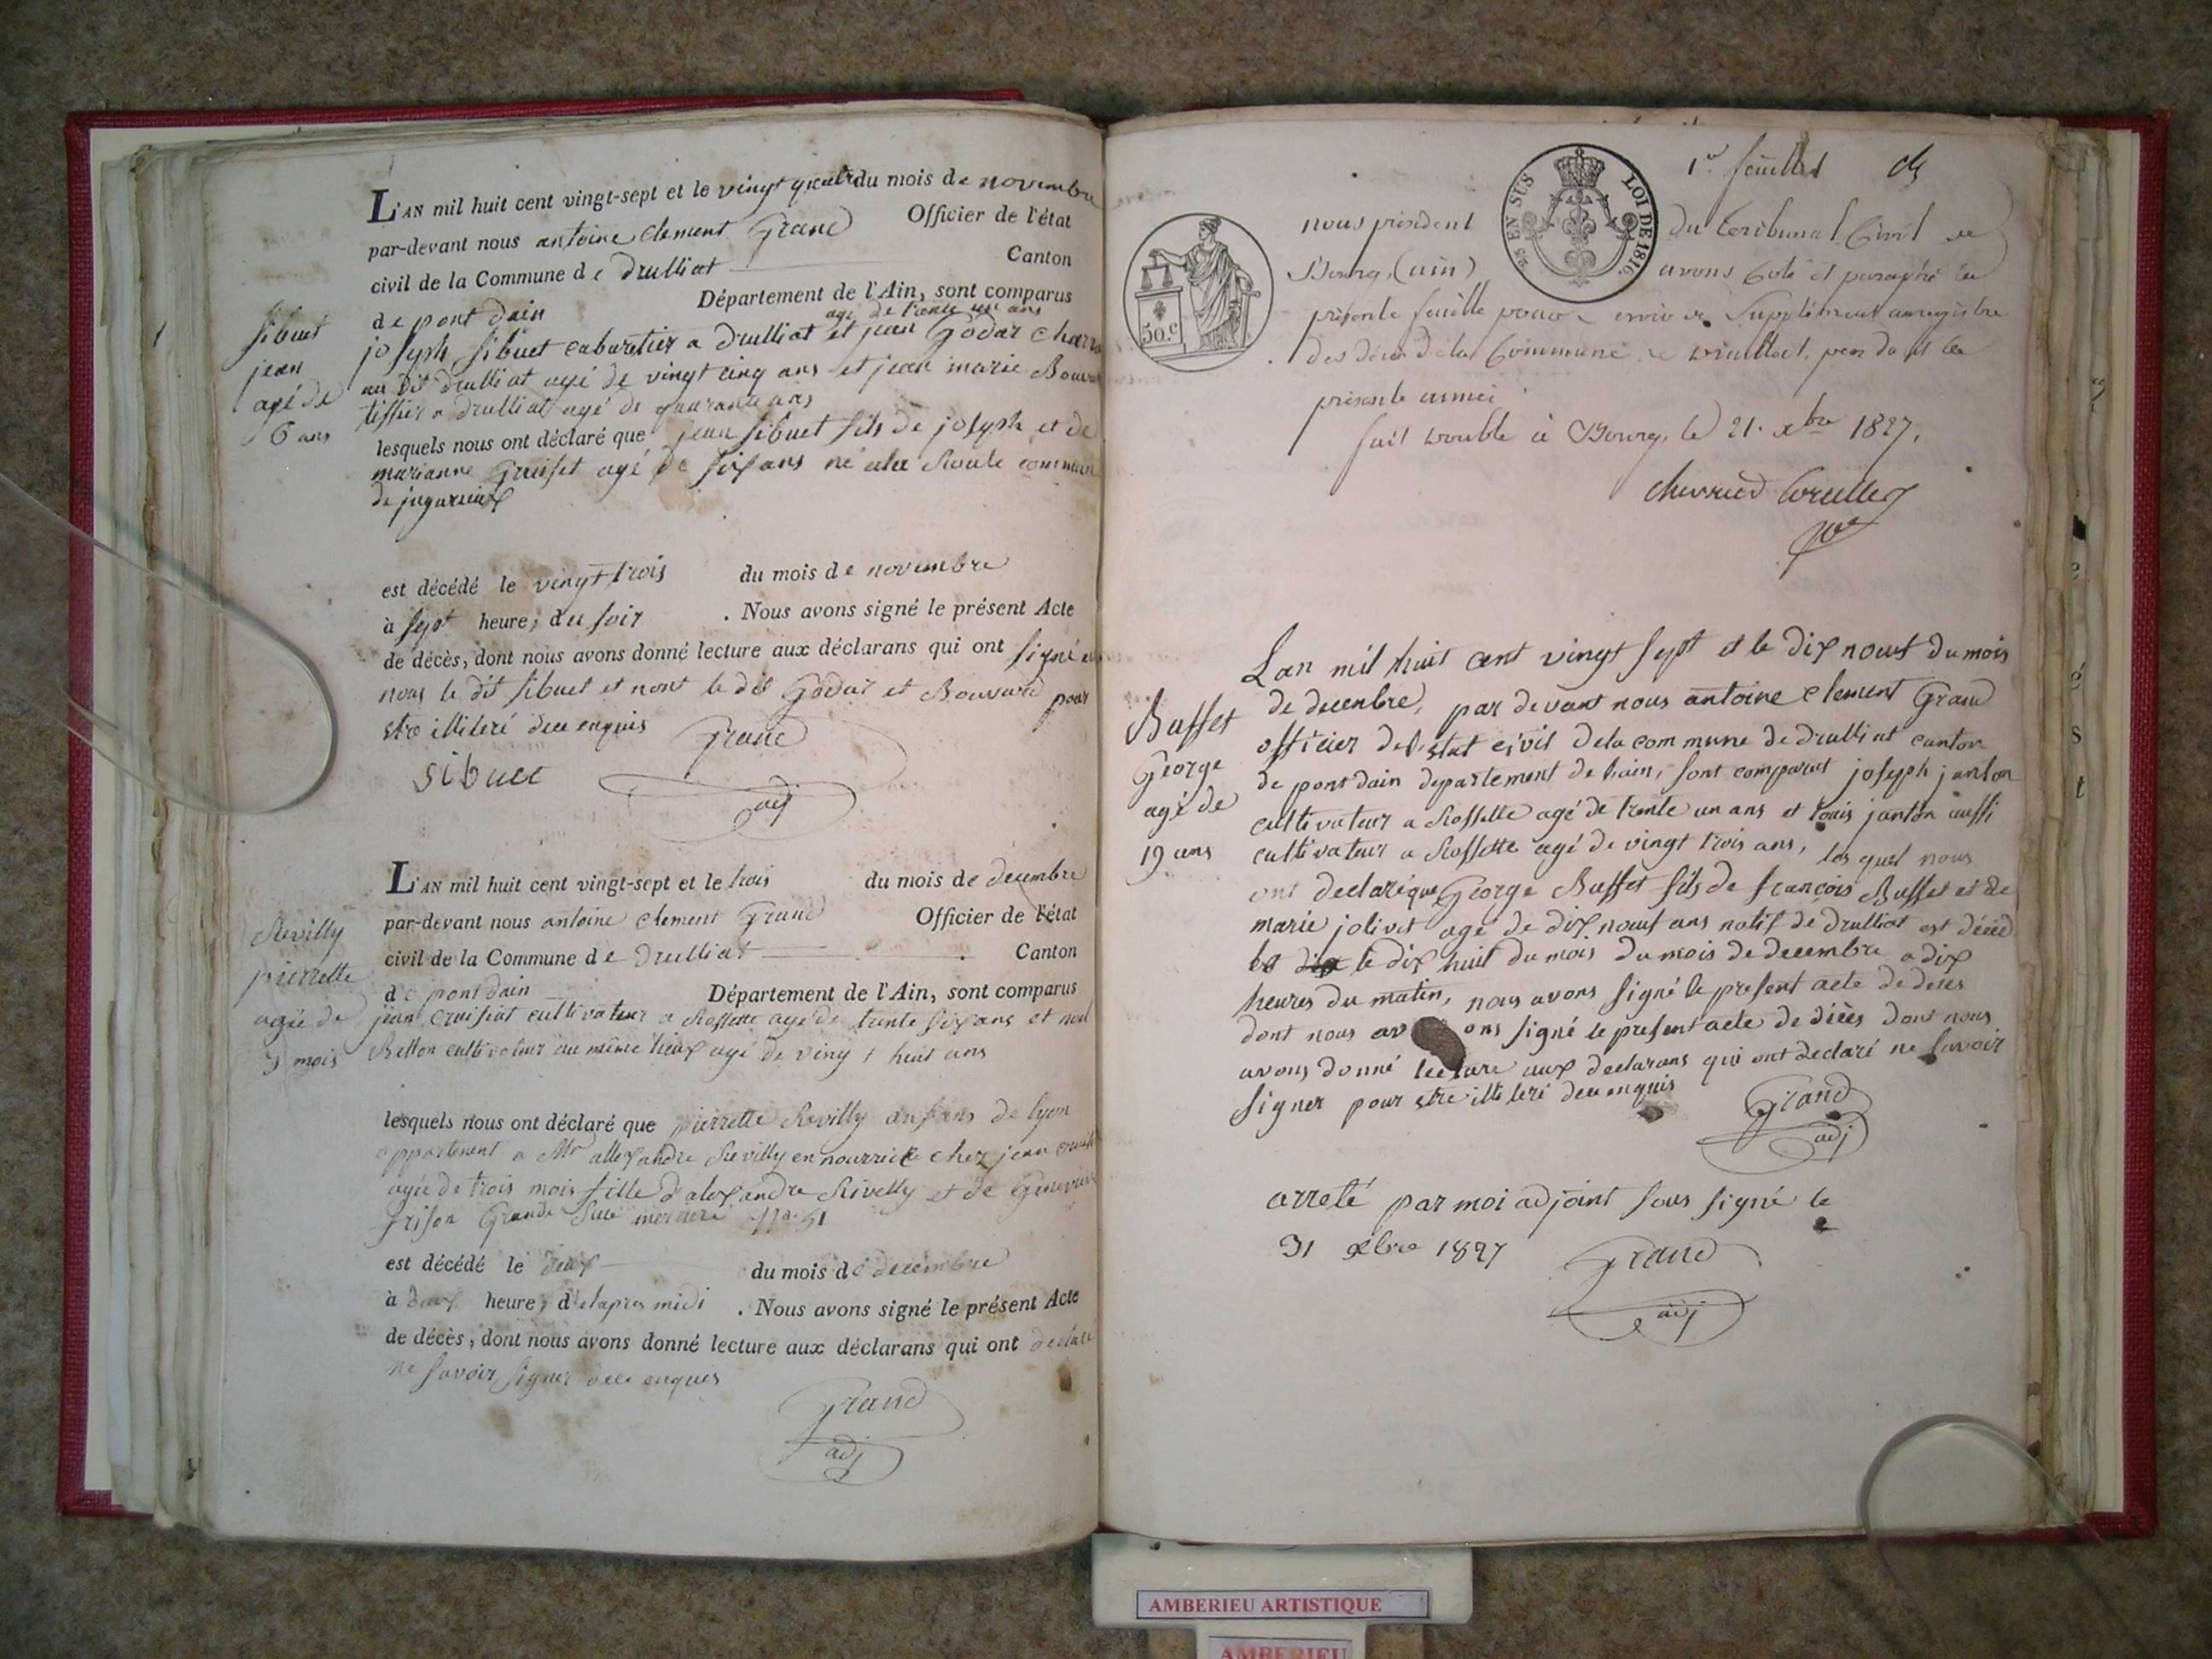 L'AN mil huit cent vingt-sept et le vingt quatre du mois de novembre
par-devant nous antoine Clement Grand Officier de l'état
civil de la Commune de Drulliat Canton
de pont dain Département de l'Ain, sont comparus
agé de trente un ans
joseph Sibuet cabaretier a Drulliat et jean Godar
au dit drulliat agé de vingt cinq ans et jean marie
tissier a drulliat agé de quarante ans
lesquels nous ont déclaré que jean Sibuet fils de joseph et de
marianne agé de six ans né commune
de jujurieux
Sibuet
jean
agé de
6 ans
est décédé le vingt trois du mois de novembre
à sept heures du soir . Nous avons signé le présent Acte
de décès, dont nous avons donné lecture aux déclarans qui ont signé
nous le dit Sibuet et nont le dit Godar et Bouvard pour
etre illiteré de ce enquis Grand
sibuet adj
L'AN mil huit cent vingt-sept et le trois du mois de decembre
par-devant nous antoine Clement Grand Officier de l'état
civil de la Commune de Drulliat Canton
de pont dain Département de l'Ain, sont comparus
jean Cruisiat cultivateur a Rossette agé de trente six ans et
Bellon cultivateur au même lieux agé de vingt huit ans
Revilly
pierrette
agée de
3 mois
lesquels nous ont déclaré que pierrette Revilly anfans de lyon
appartenent a Mr allexandre Revilly en nourrice chez jean
agée de trois mois fille d'alexandre Rivelly et de
Grison Grande Rue merciere No 51
est décédé le deux du mois de decembre
à deux heures de lapres midi . Nous avons signé le présent Acte
de décès, dont nous avons donné lecture aux déclarans qui ont declaré
ne savoir signer de ce enquis
Grand
adj
1er feuillet
25 EN SUS LOI DE 1816.
50.c
nous president du tribunal Civil de
Bourg, (ain) avons Coté et paraphé la
présente feuille pour servir de Supplément au registre
des décès de la Commune de Druillat, pendant la
présente année
fait Double à Bourg, le 21. xbre 1827.
Lan mil huit cent vingt sept et le dix neuf du mois
de decembre, par devant nous antoine Clement Grand
officier de l'etat civil de la commune de drulliat canton
de pont dain departement de lain, sont comparut joseph janton
cultivateur a Rossette agé de trente un ans et louis janton aussi
cultivateur a Rossette agé de vingt trois ans, les quel nous
ont declaré que George Buffet fils de françois Buffet et de
marie jolivet agé de dix neuf ans natif de drulliat est décéd
le dix huit du mois du mois de decembre a dix
heures du matin, nous avons signé le present acte de deces
dont nous avons signé le present acte de décès dont nous
avons donné lecture aux declarans qui ont declaré ne savoir
signer pour etre illiteré de ce enquis
Grand
adj
Buffet
George
agé de
19 ans
arreté par moi adjoint sous signé le
31 xbre 1827 Grand
adj
AMBERIEU ARTISTIQUE
AMBERIEU